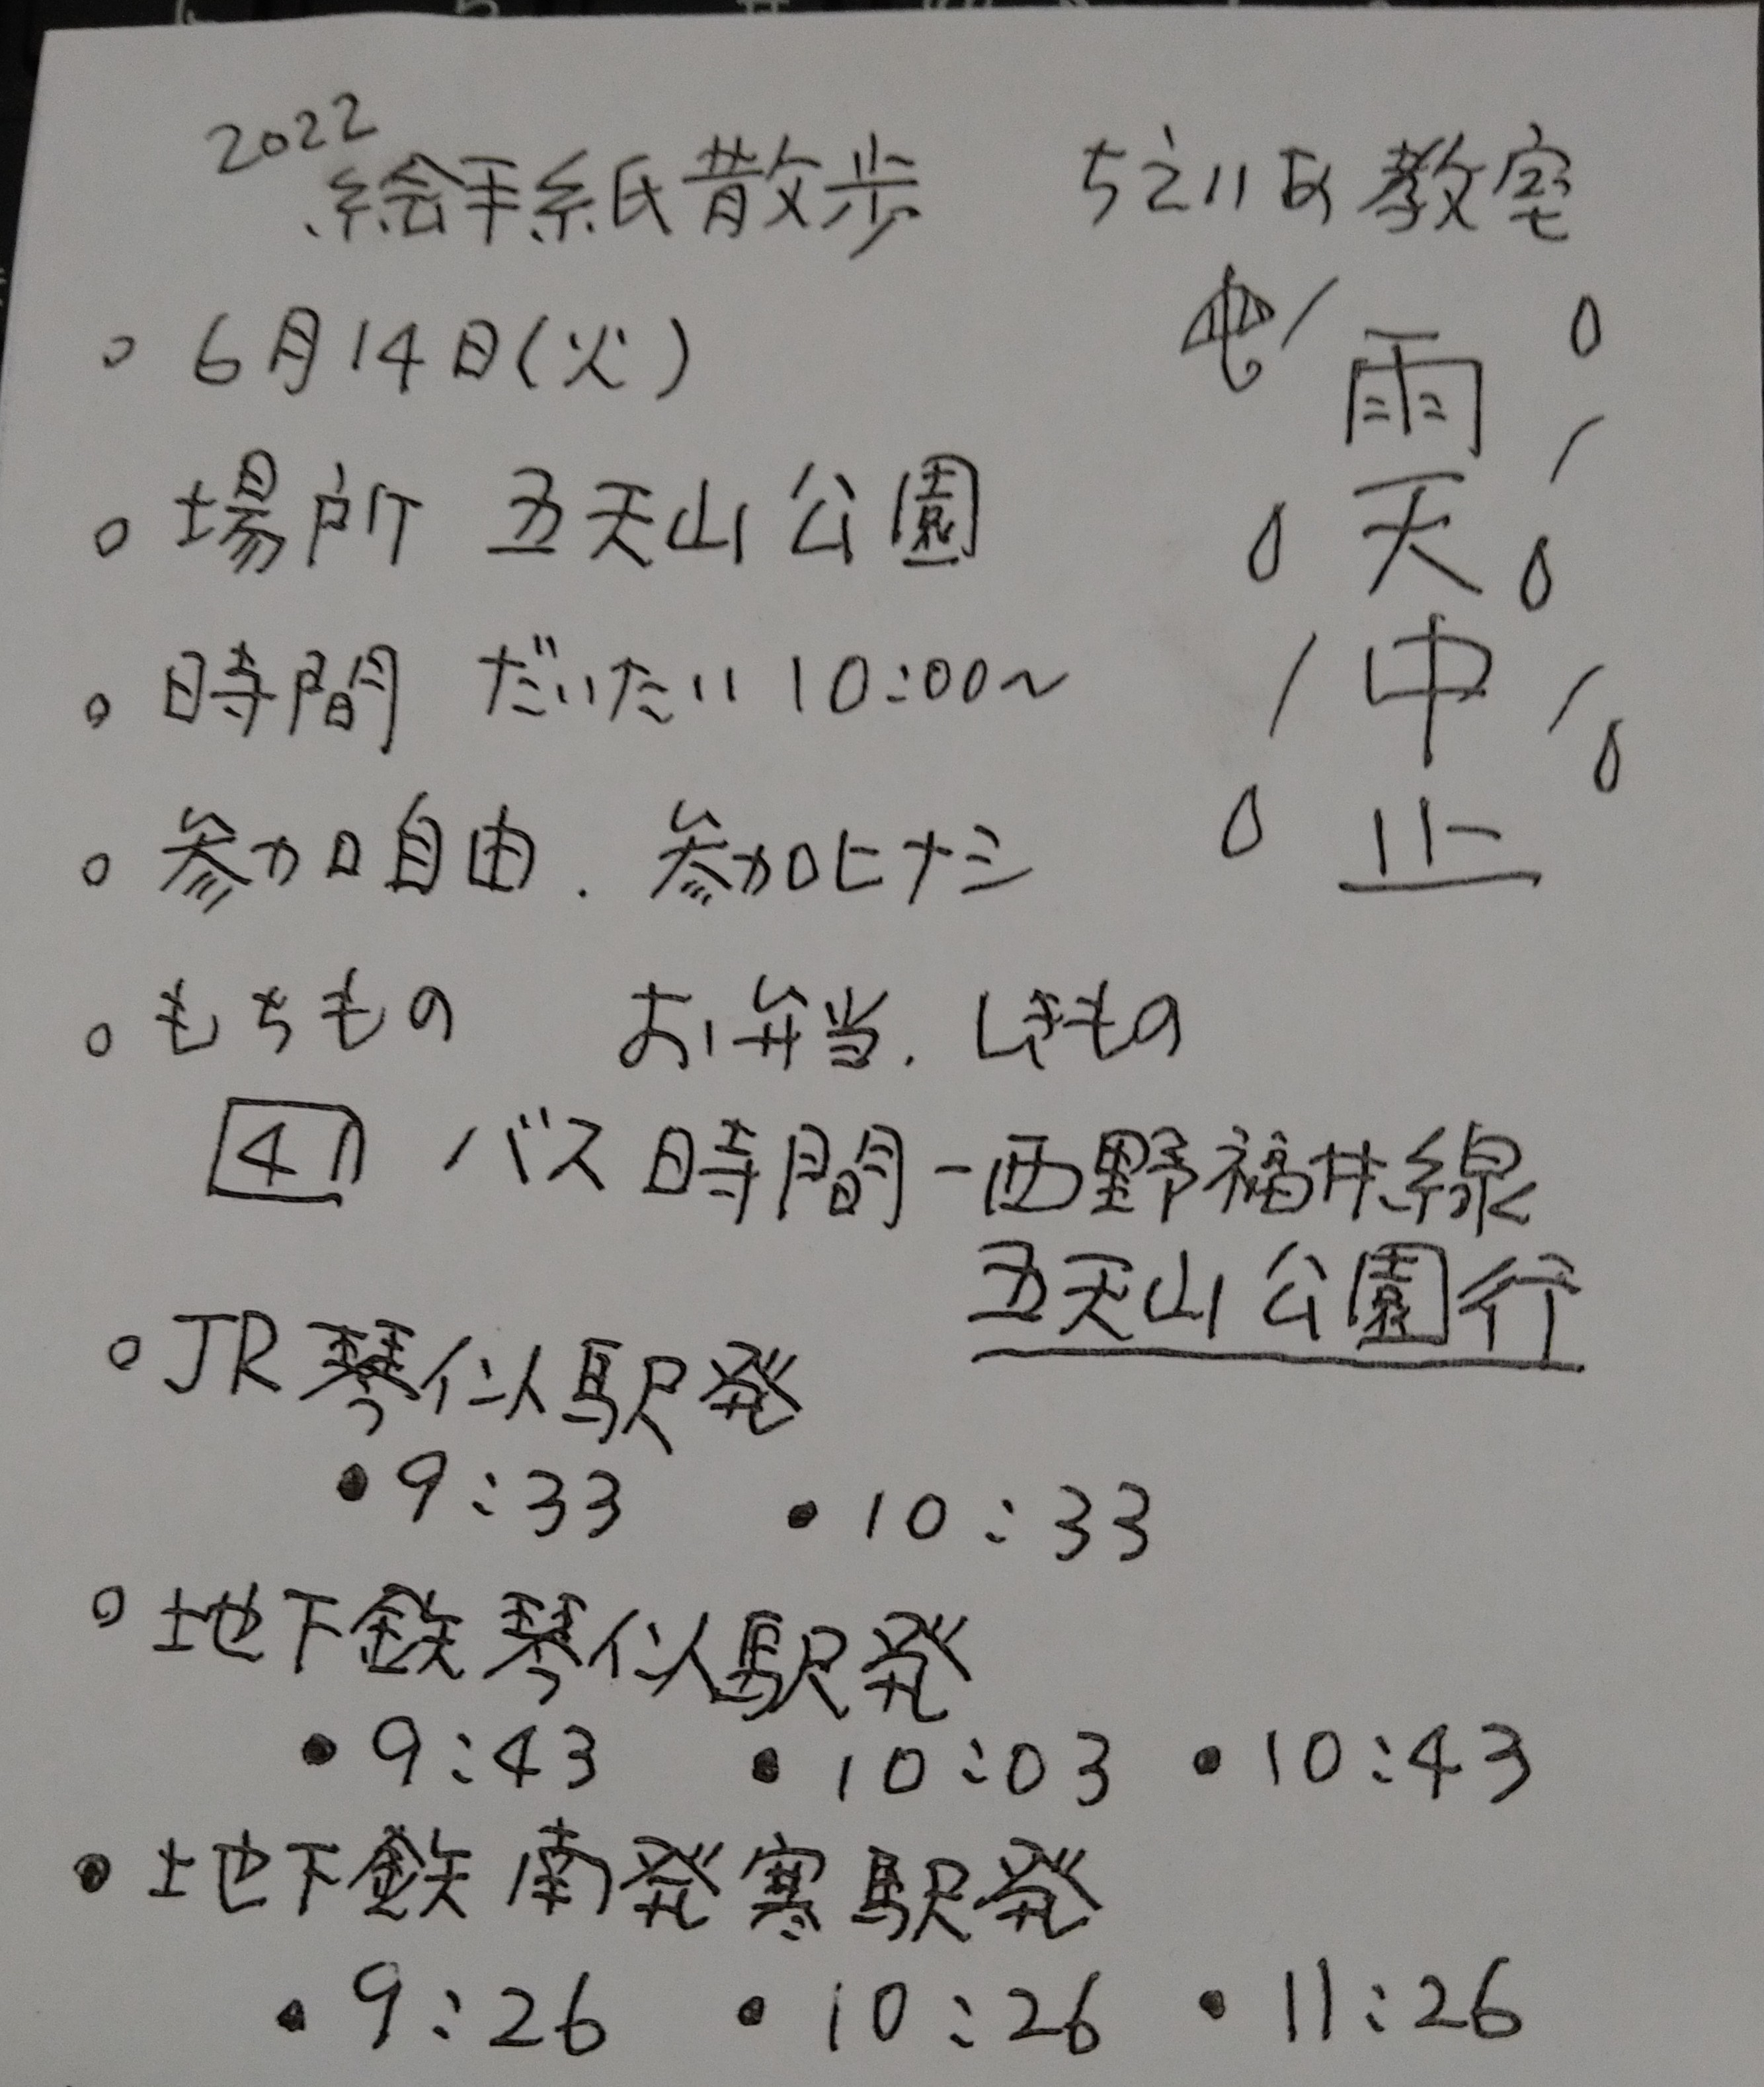 2022
絵手紙散歩 ちえりあ教室
。6月14日(火)
。場所 五天山公園
。時間 だいたい10:00～
。参加自由. 参加ヒナシ
。もちもの お弁当. しきもの
雨天中止
バス時間-西野福井線
五天山公園行
。JR琴似駅発
・9:33 ・10:33
。地下鉄琴似駅発
・9:43 ・10:03 ・10:43
・地下鉄南発寒駅発
・9:26 ・10:26 ・11:26